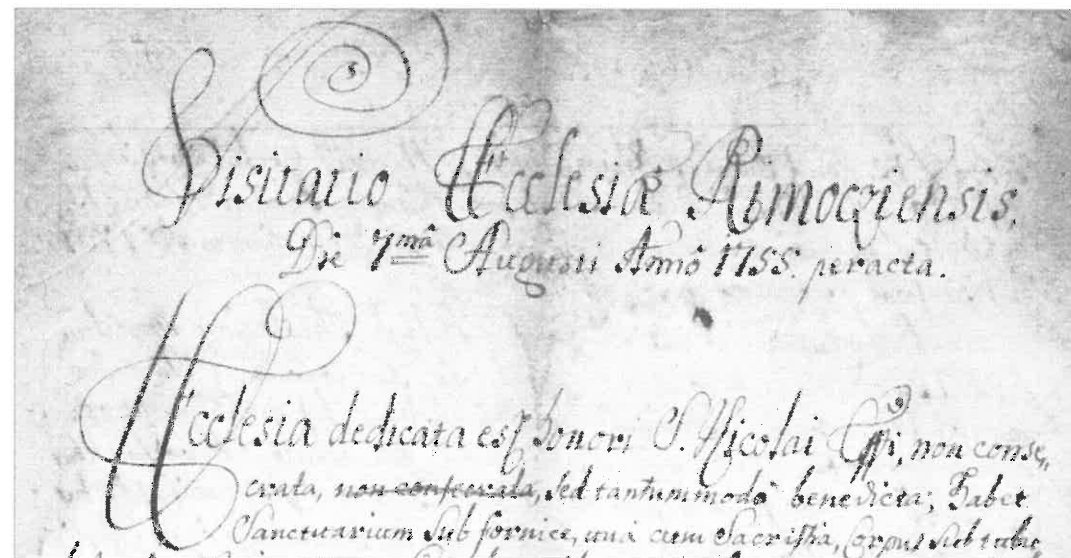 Visitatio Ecclesiæ Rimociensis.
Die 7mâ Augusti Annô 1755. peracta.
Ecclesia dedicata est honori S. Nicolai Eppi, non conse„
crata, non consecrata, sed tantummodò benedicta; habet
Sanctuarium sub fornice, unà cum Sacristia, Corpus sub tabu